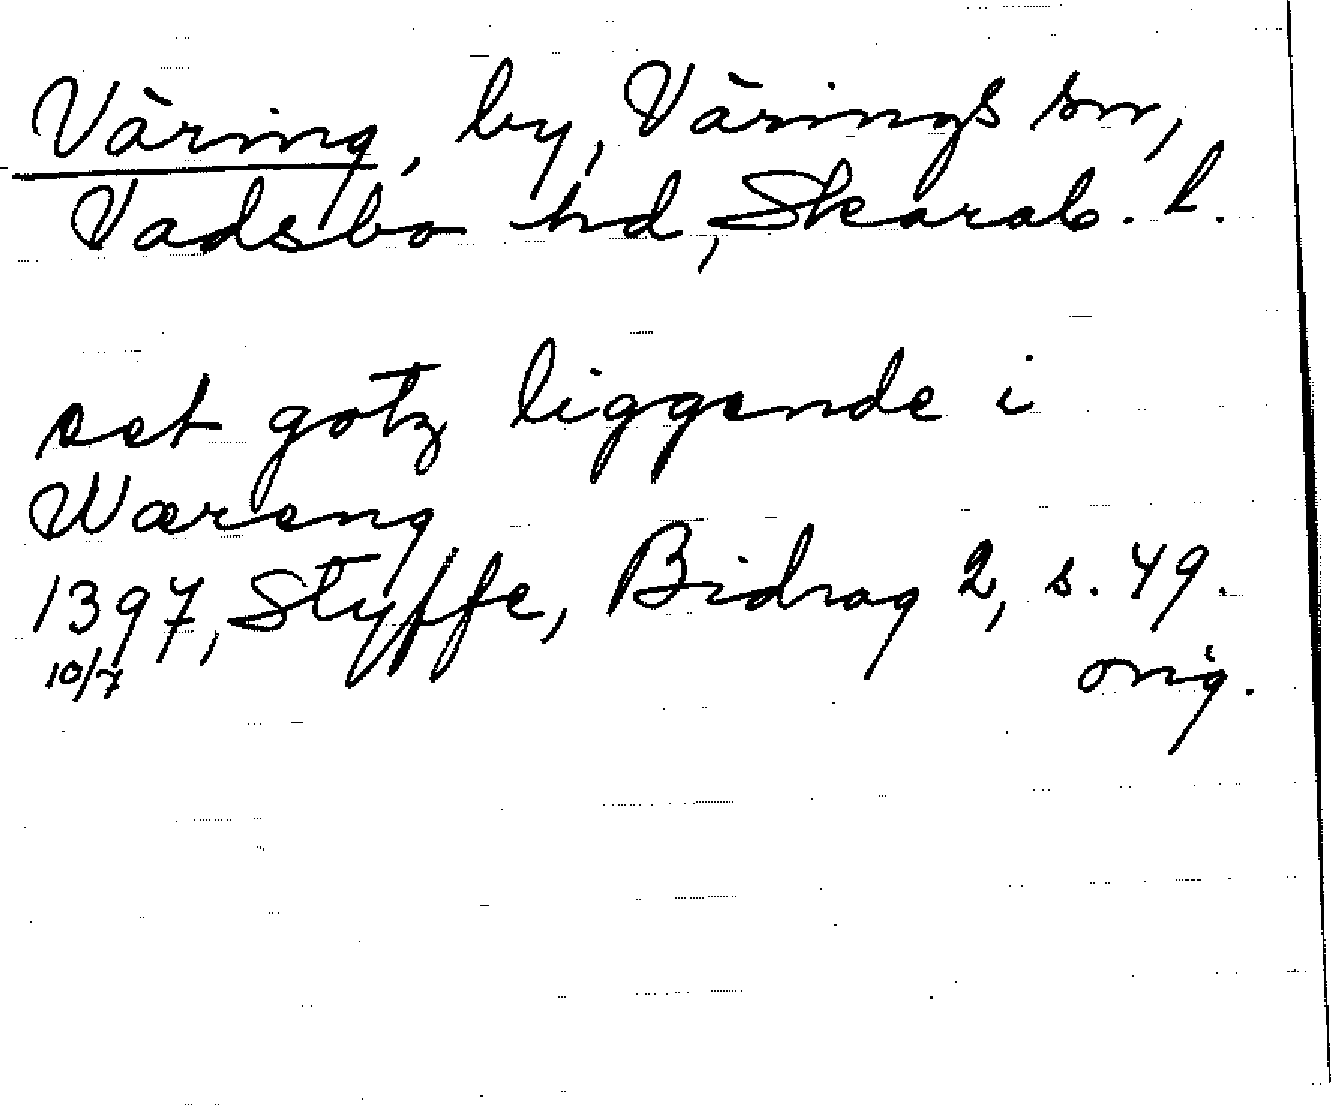 Väring, by, Värings sn,
Vadsbo hd, Skarab. l.
eet gotz liggende i
Wæreng
1397, Styffe, Bidrag 2, s. 49.
10/7 orig.